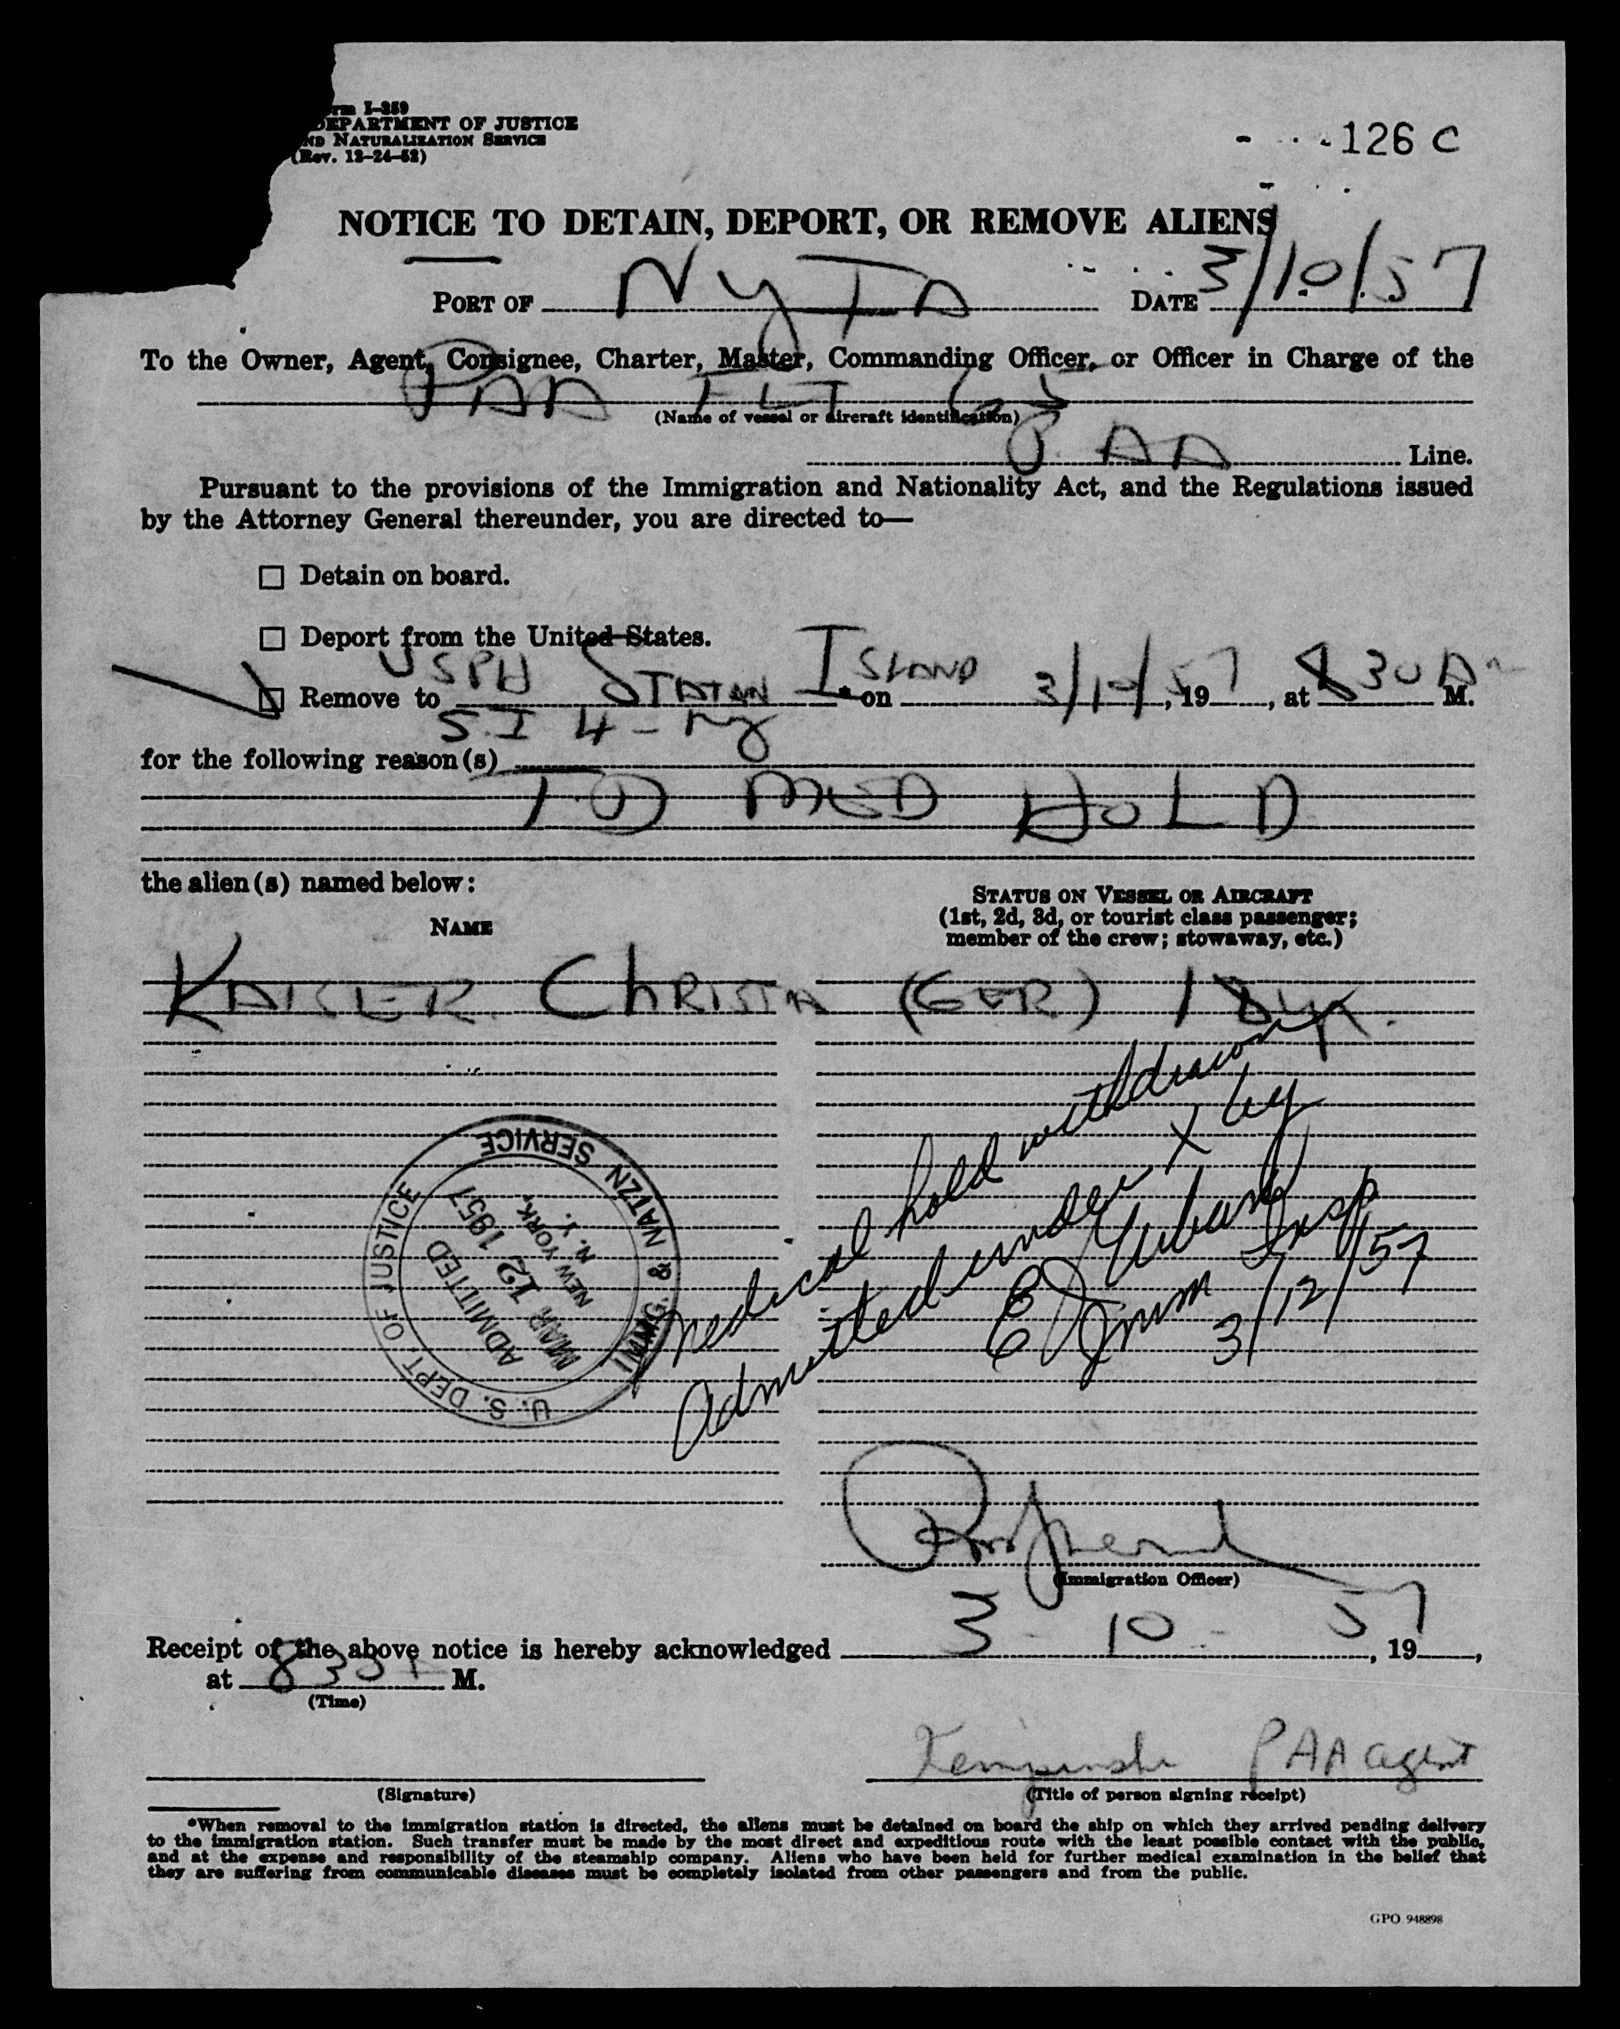 rm I-259
DEPARTMENT OF JUSTICE
ND NATURALIZATION SERVICE
(Rev. 12-24-52)
126 C
NOTICE TO DETAIN, DEPORT, OR REMOVE ALIENS
PORT OF NYIA DATE 3/10/57
To the Owner, Agent, Consignee, Charter, Master, Commanding Officer, or Officer in Charge of the
PAA FLT 65
(Name of vessel or aircraft identification)
PAA Line.
Pursuant to the provisions of the Immigration and Nationality Act, and the Regulations issued
by the Attorney General thereunder, you are directed to—
☐ Detain on board.
☐ Deport from the United States.
☑ Remove to USPH STATEN ISLAND * on 3/10/57, 19, at 830 A M.
S.I 4 - NY
for the following reason(s)
TO MED HOLD
the alien(s) named below:
NAME
STATUS ON VESSEL OR AIRCRAFT
(1st, 2d, 3d, or tourist class passenger;
member of the crew; stowaway, etc.)
KAISER CHRISTA (GER) 18 yr.
Medical hold withdrawn
Admitted under X by
E J Urban
Imm Insp
3/12/57
U. S. DEPT. OF JUSTICE
IMMG. & NATZN SERVICE
ADMITTED
MAR 12 1957
NEW YORK,
N. Y.
(Immigration Officer)
Receipt of the above notice is hereby acknowledged 3 - 10 - 57, 19,
at 835 M.
(Time)
PAA agent
(Signature)
(Title of person signing receipt)
*When removal to the immigration station is directed, the aliens must be detained on board the ship on which they arrived pending delivery
to the immigration station. Such transfer must be made by the most direct and expeditious route with the least possible contact with the public,
and at the expense and responsibility of the steamship company. Aliens who have been held for further medical examination in the belief that
they are suffering from communicable diseases must be completely isolated from other passengers and from the public.
GPO 948898